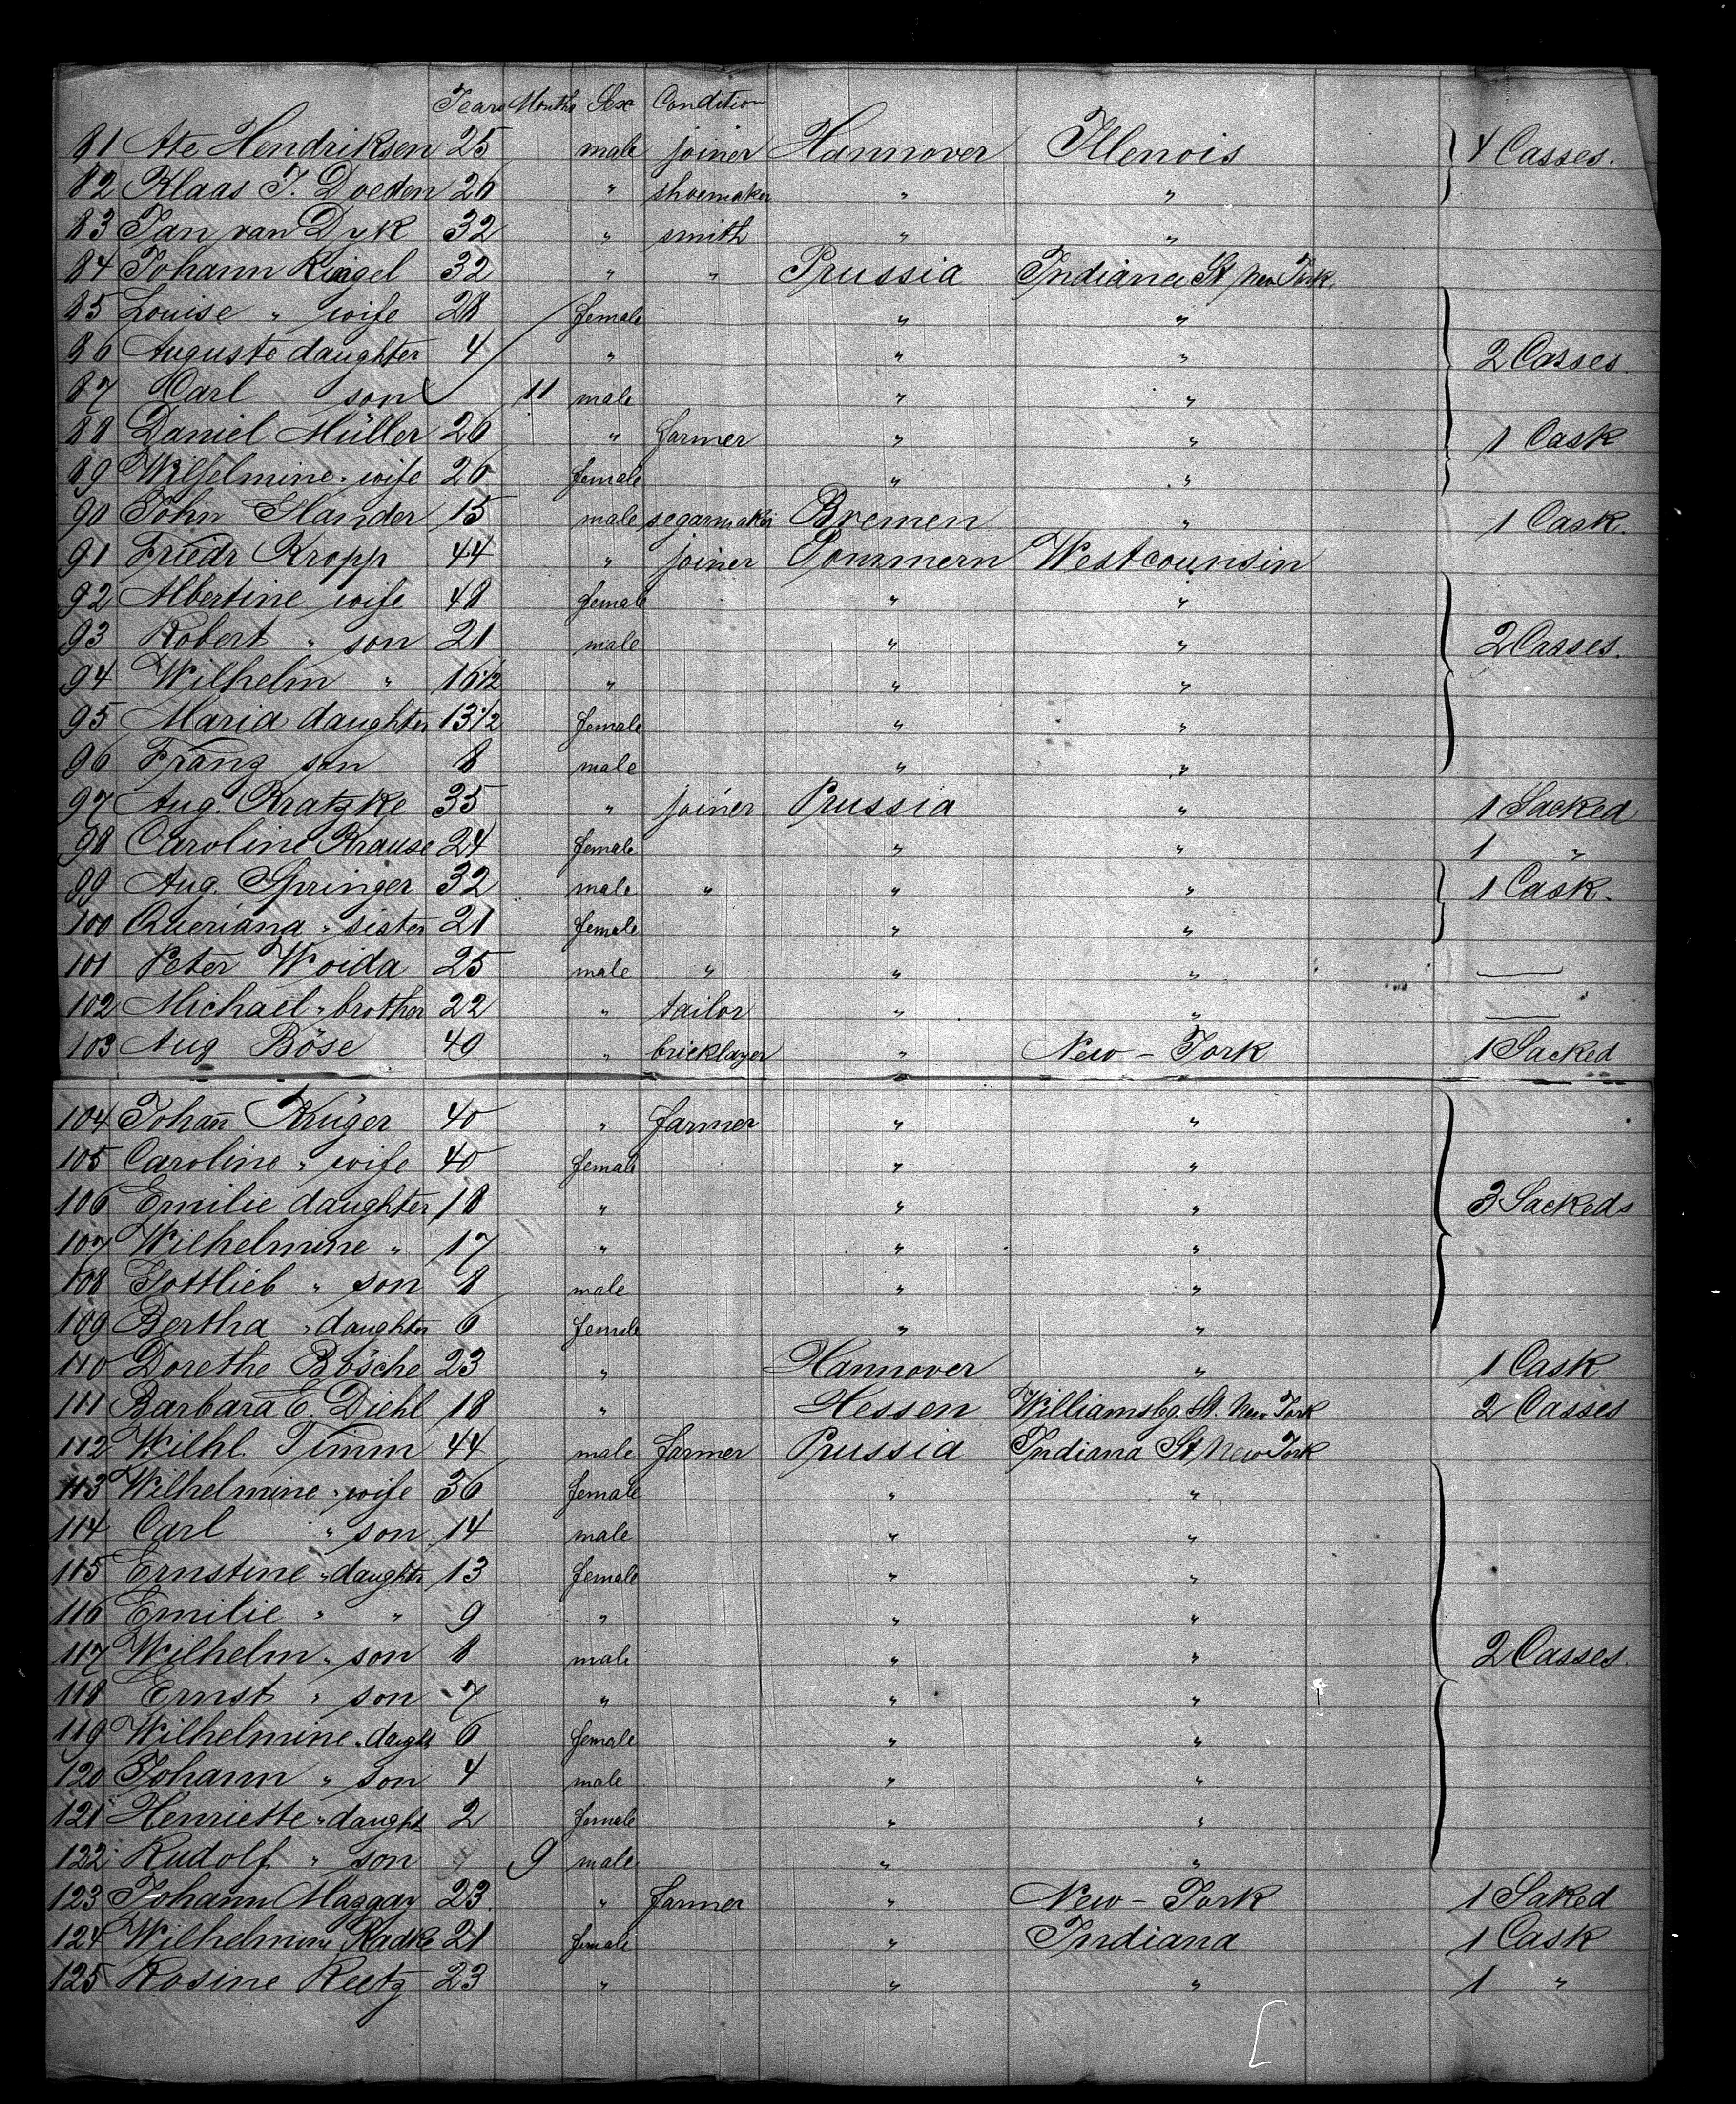 Years Months Sex Condition
81 Ate Hendriksen 25 male joiner Hannover Illenois } 4 Casses.
82 Klaas T. Doeden 26 " shoemaker " "
83 Jan van Dyk 32 " smith " "
84 Johann Ringel 32 " " Prussia Indiana St New York
85 Louise " wife 28 female " "
86 Auguste daughter 4 " " " 2 Casses.
87 Carl son 11 male " "
88 Daniel Müller 26 " farmer " " 1 Cask
89 Wilhelmine " wife 26 female " "
90 John Hander 15 male segarmaker Bremen " 1 Cask.
91 Friedr Kropp 44 " joiner Pommern Westcounsin
92 Albertine wife 48 female " "
93 Robert " son 21 male " " 2 Casses.
94 Wilhelm " 16 1/2 " " "
95 Maria daughter 13 1/2 female " "
96 Franz son 8 male " "
97 Aug. Kratzke 35 " joiner Prussia " 1 Sacked
98 Caroline Krause 24 female " " 1 "
99 Aug. Springer 32 male " " " } 1 Cask.
100 " sister 21 female " "
101 Peter Woida 25 male " " " —
102 Michael " brother 22 " tailor " " —
103 Aug Böse 49 " bricklayer " New-York 1 Sacked
104 Johan̄ Krüger 40 " farmer " "
105 Caroline " wife 40 female " "
106 Emilie daughter 18 " " " 3 Sackeds
107 Wilhelmine " 17 " " "
108 Gottlieb " son 8 male " "
109 Bertha " daughter 6 female " "
110 Dorethe Bösche 23 " Hannover " 1 Cask
111 Barbara E. Diehl 18 " Hessen Williamsbg. St. New York 2 Casses
112 Wilhl. Timm 44 male farmer Prussia Indiana St New York
113 Wilhelmine " wife 36 female " "
114 Carl " son 14 male " "
115 Ernstine " daughter 13 female " "
116 Emilie " " 9 " " "
117 Wilhelm " son 8 male " " 2 Casses.
118 Ernst " son 7 " " "
119 Wilhelmine " daught 6 female " "
120 Johann " son 4 male " "
121 Henriette " daught 2 female " "
122 Rudolf " son 9 male " "
123 Johann 23 " farmer " New-York 1 Saked
124 Wilhelmine Radke 21 female " Indiana 1 Cask
125 Rosine Reetz 23 " " " 1 "